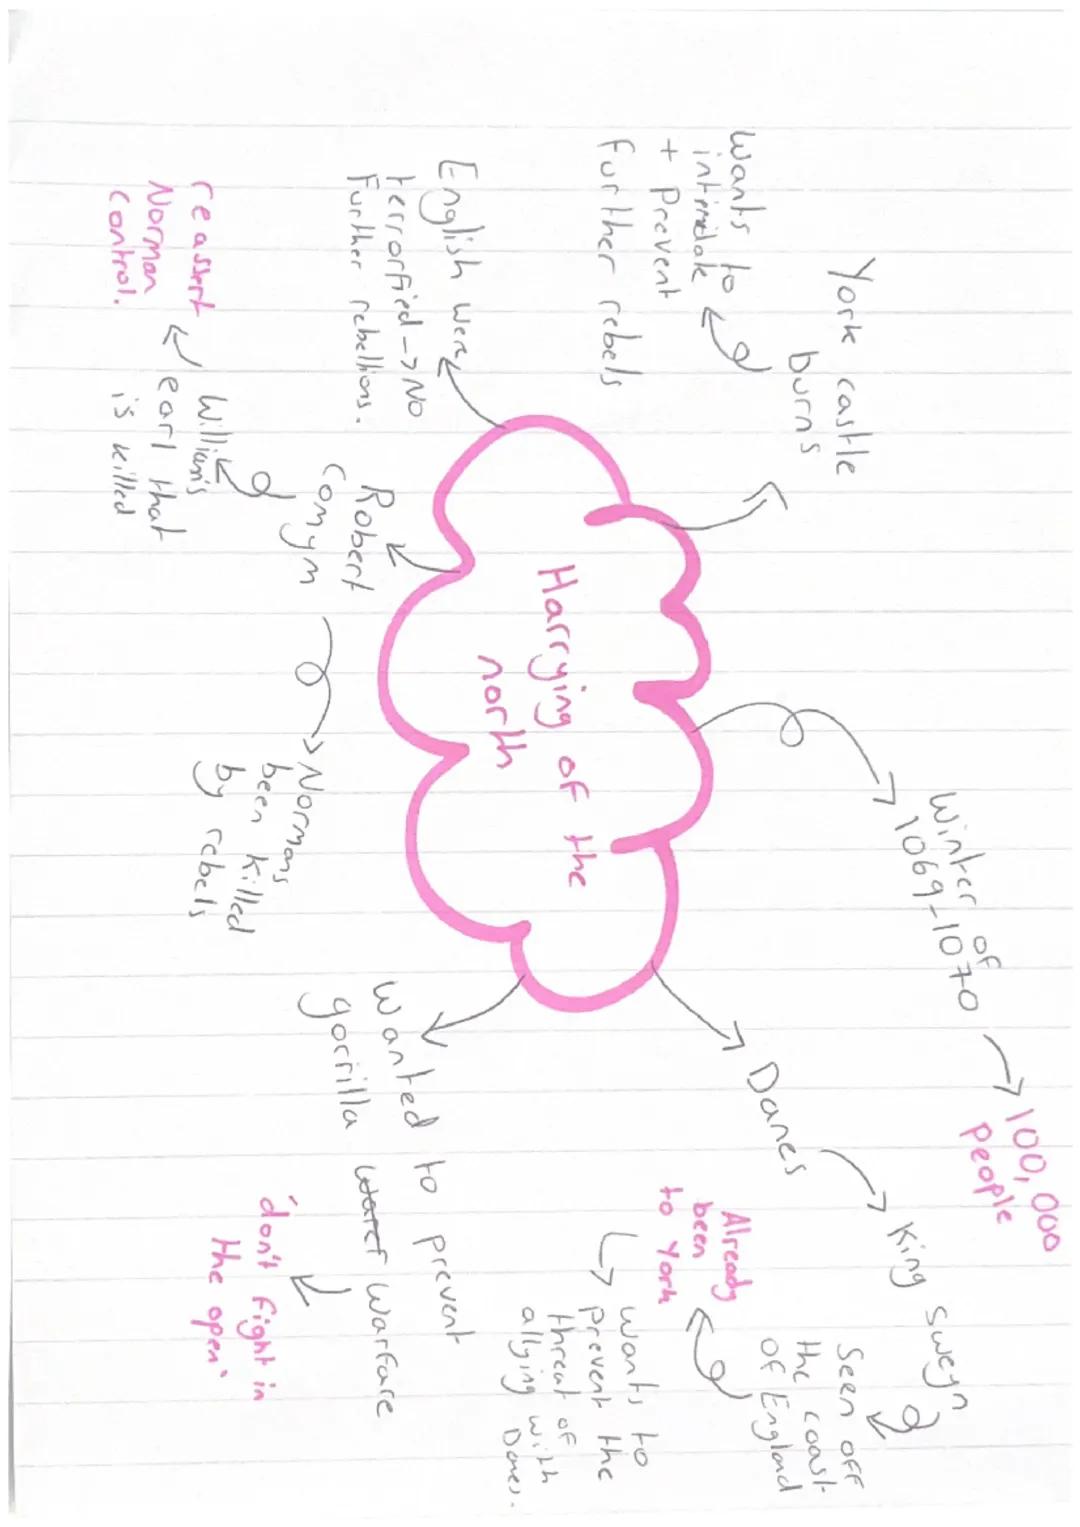 Harrying of the
north
York castle
burns
Wants to
intimidate
+ Prevent
further rebels
Winter of
1069-1070
100,000
people
Danes
King Sweyn
Seen off
the coast
of England
Already
been
to York
Wants to
prevent the
threat of
allying with
Danes.
Wanted to prevent
gorrilla warfare
'don't fight in
the open'
Robert
Comyn
William's
earl that
is killed
reassert
Norman
control.
Normans
been killed
by rebels
English were
terrorfied -> No
Further rebellions.